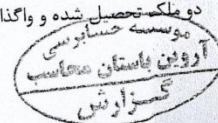 دو ملک تحصیل شده و واگذا
موسسه حسابرسی
آروین باستان محاسب
گزارش